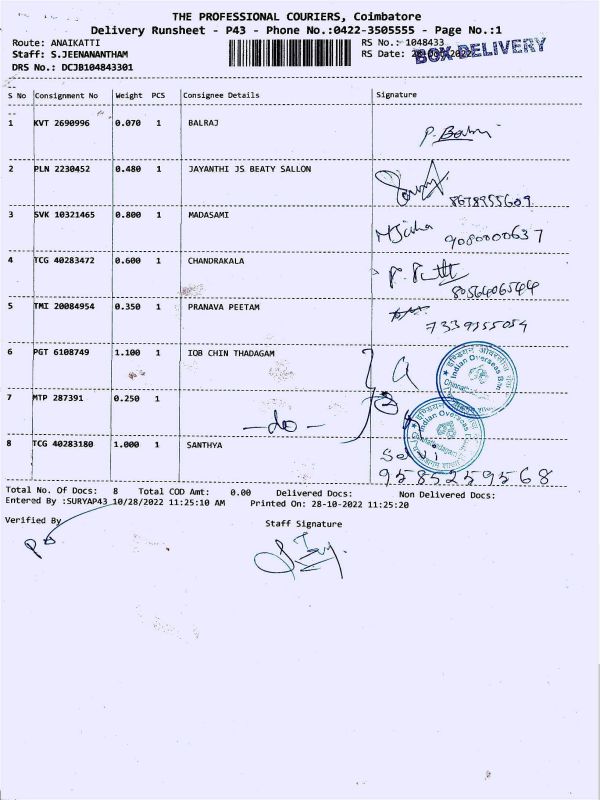 THE PROFESSIONAL COURIERS, Coimbatore
Delivery Runsheet - P43 - Phone No.:0422-3505555 - Page No.:1
Route: ANAIKATTI RS No.: 1048433
Staff: S.JEENANANTHAM RS Date: 28-Oct-2022 BOX DELIVERY
DRS No.: DCJB104843301
S No Consignment No Weight PCS Consignee Details Signature
1 KVT 2690996 0.070 1 BALRAJ P. Balraj
2 PLN 2230452 0.480 1 JAYANTHI JS BEATY SALLON
8678955609
3 SVK 10321465 0.800 1 MADASAMI
9080000637
4 TCG 40283472 0.600 1 CHANDRAKALA
8056406544
5 TMI 20084954 0.350 1 PRANAVA PEETAM
7339355054
6 PGT 6108749 1.100 1 IOB CHIN THADAGAM
Indian Overseas
7 MTP 287391 0.250 1
-do-
Indian Overseas
8 TCG 40283180 1.000 1 SANTHYA Selvi
9585259568
Total No. Of Docs: 8 Total COD Amt: 0.00 Delivered Docs: Non Delivered Docs:
Entered By :SURYAP43 10/28/2022 11:25:10 AM Printed On: 28-10-2022 11:25:20
Verified By Staff Signature